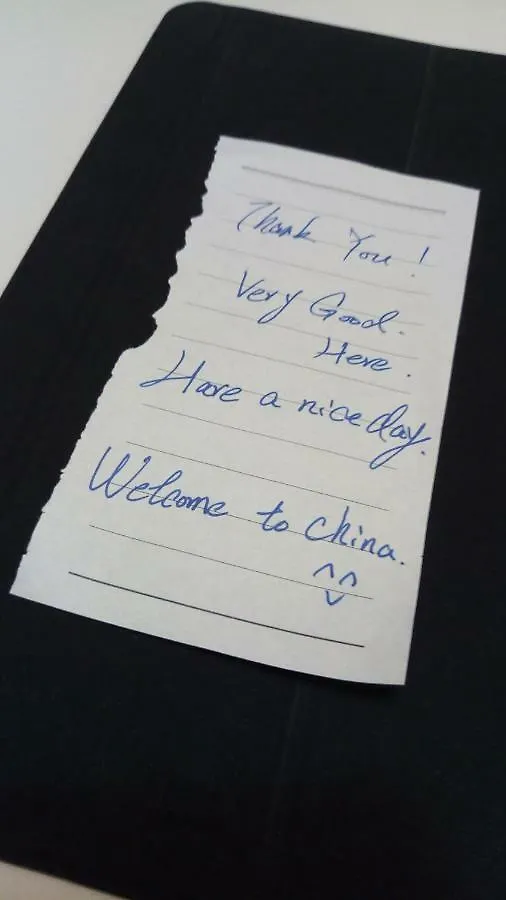 Thank You!
Very Good.
Here.
Have a nice day.
Welcome to China.
^^